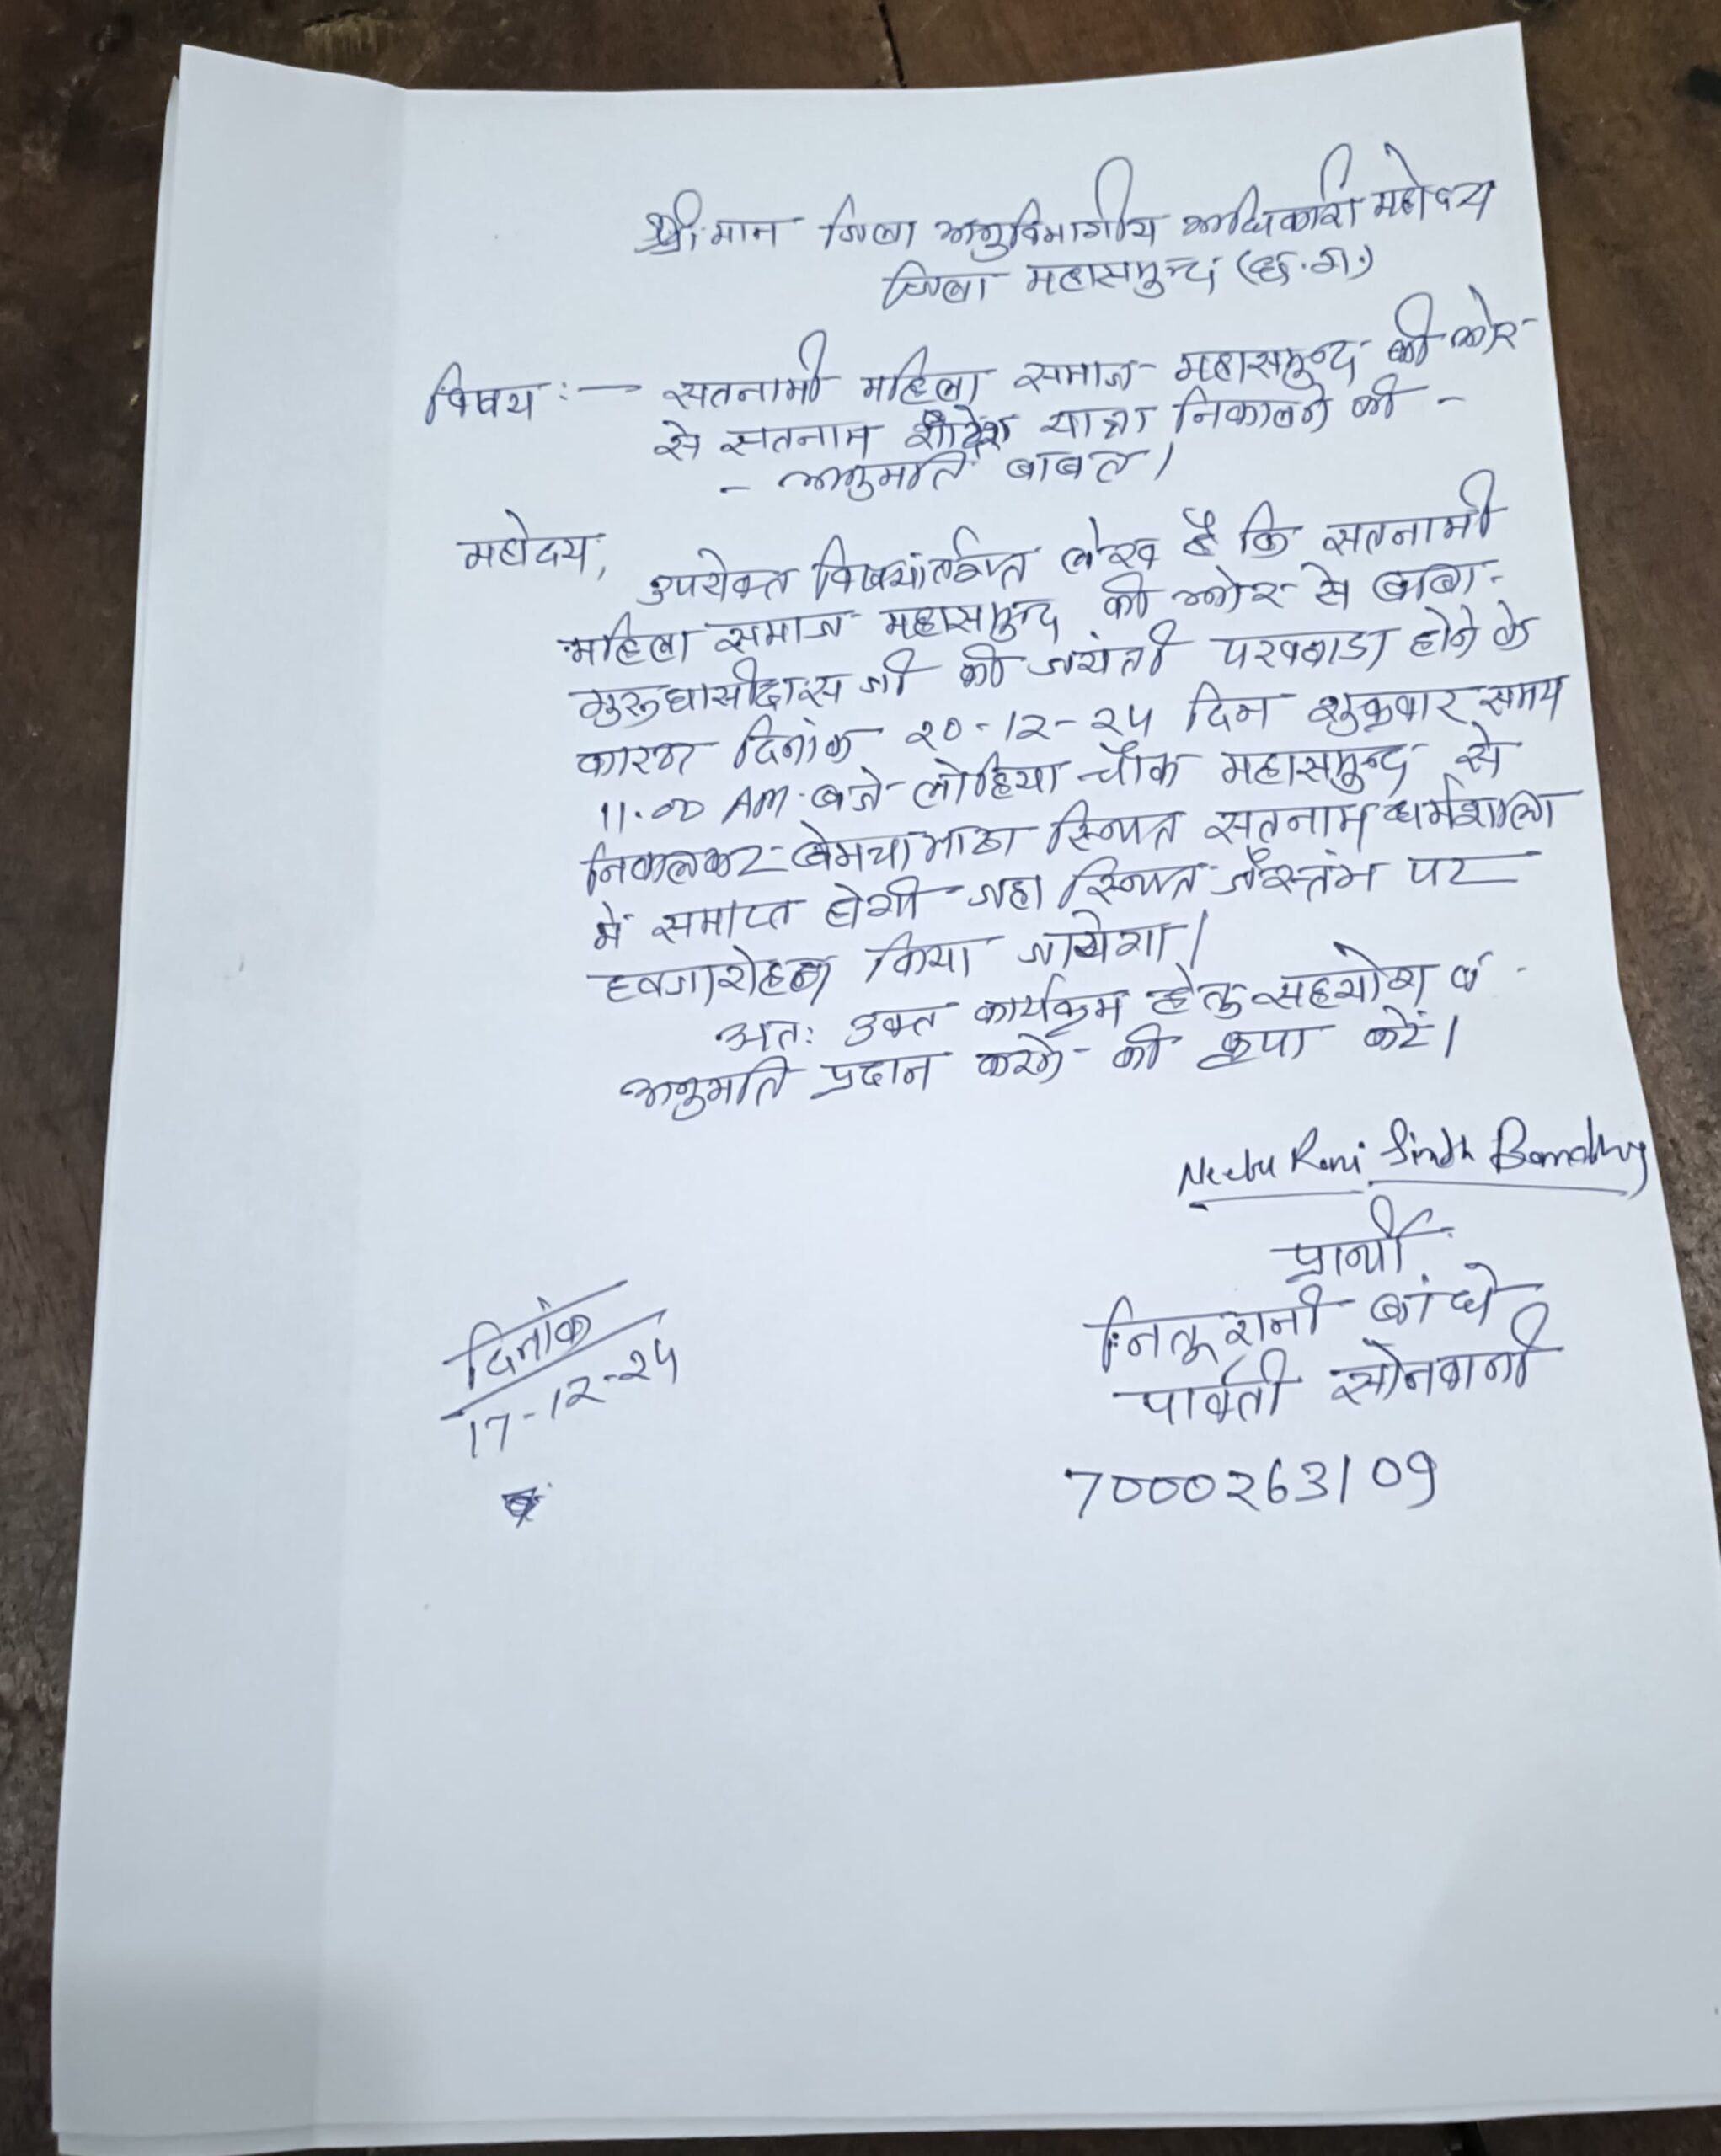 श्रीमान जिला अनुविभागीय अधिकारी महोदय
जिला महासमुन्द (छ.ग.)
विषय :— सतनामी महिला समाज महासमुन्द की ओर
से सतनाम संदेश यात्रा निकालने की -
- अनुमति बाबत।
महोदय,
उपरोक्त विषयांतर्गत लेख है कि सतनामी
महिला समाज महासमुन्द की ओर से बाबा
गुरूघासीदास जी की जयंती परववाडा होने के
कारण दिनांक 20-12-24 दिन शुक्रवार समय
11.00 AM बजे लोहिया चौक महासमुन्द से
निकलकर बेमचा भाठा स्थित सतनाम धर्मशाला
में समाप्त होगी जहा स्थित जैस्तंभ पर
ध्वजारोहण किया जायेगा।
अतः उक्त कार्यक्रम हेतु सहयोग व
अनुमति प्रदान करने की कृपा करें।
Neetu Rani Singh
प्रार्थी
नितू रानी बांधे
पार्वती सोनवानी
7000263109
दिनांक
17-12-24